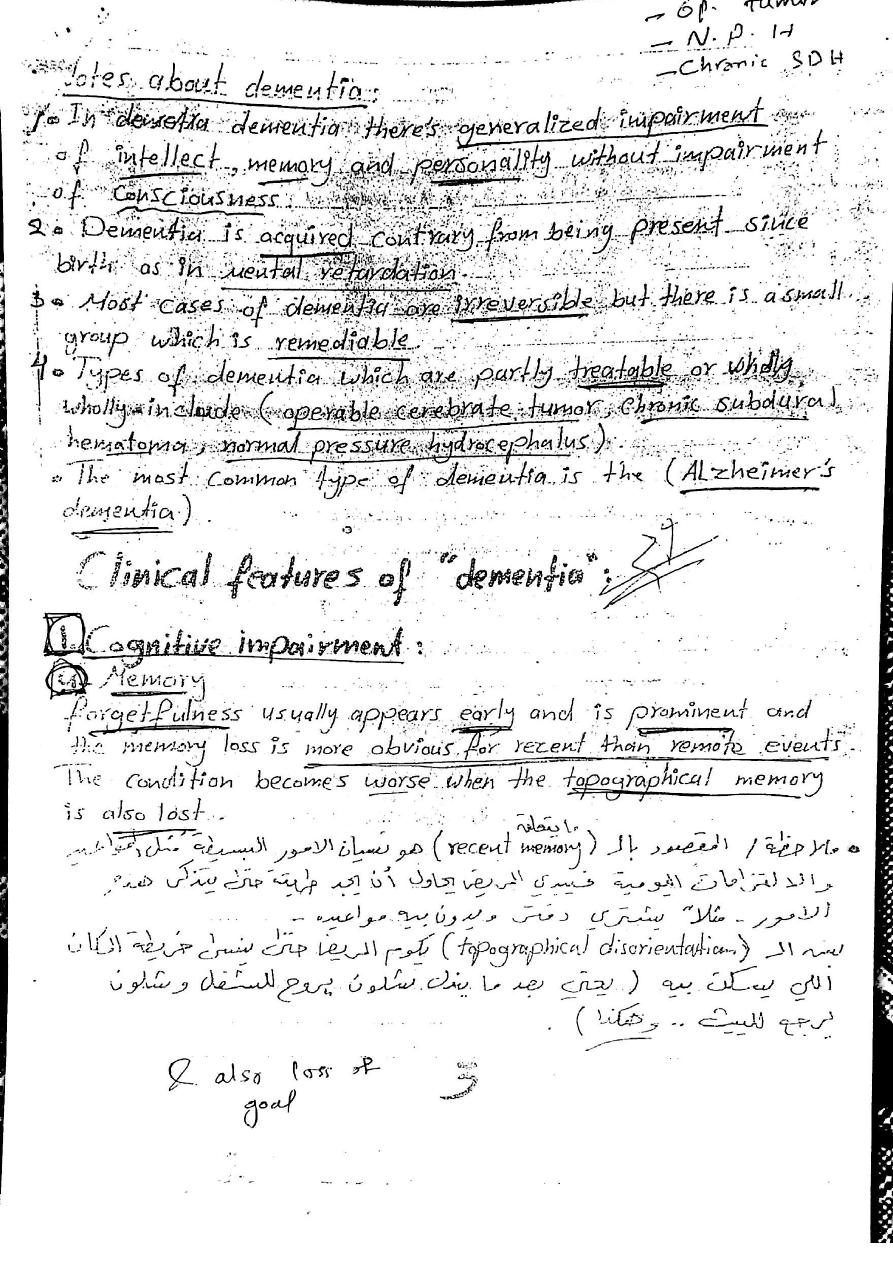 → Op. tumor
– N.P.H
– Chronic SDH
Notes about dementia:
1• In dementia there's generalized impairment
of intellect, memory and personality without impairment
of Consciousness.
2• Dementia is acquired contrary from being present since
birth as in mental retardation.
3• Most cases of dementia are irreversible but there is a small
group which is remediable
4• Types of dementia which are partly treatable or wholly
wholly include (operable cerebrate tumor, chronic subdural
hematoma, normal pressure hydrocephalus).
• The most common type of dementia is the (ALzheimer's
dementia)
Clinical features of "dementia":
1. Cognitive impairment:
Memory
forgetfulness usually appears early and is prominent and
the memory loss is more obvious for recent than remote events.
The condition becomes worse when the topographical memory
is also lost.
ما يتعلق
• ملاحظة / المقصود بالـ (recent memory) هو نسيان الامور البسيطة مثل المواعيد
والالتزامات اليومية فيبدي المريض يحاول أن يجد طريقة حتى يتذكر هذه
الامور - مثلاً يشتري دفتر ويدون بيه مواعيده -
الـ (topographical disorientation) يكوم المريض حتى ينسى خريطة المكان
اللي يسكن بيه (يعني بعد ما يندل شلون يروح للشغل وشلون
يرجع للبيت .. وهكذا).
& also loss of
goal
3